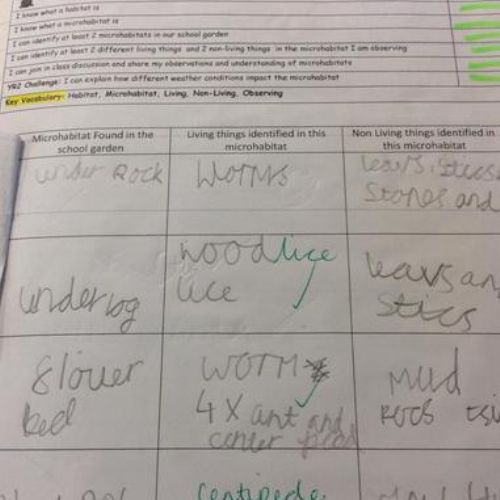 I know what a habitat is
I know what a microhabitat is
I can identify at least 2 microhabitats in our school garden
I can identify at least 2 different living things and 2 non-living things in the microhabitat I am observing
I can join in class discussion and share my observations and understanding of microhabitats
YR2 Challenge: I can explain how different weather conditions impact the microhabitat
Key Vocabulary: Habitat, Microhabitat, Living, Non-Living, Observing
Microhabitat Found in the school garden
Living things identified in this microhabitat
Non Living things identified in this microhabitat
under Rock
Worms
leavs, stics
Stones and
under log
woodlice
lice
leavs an
stics
flouer
bed
worm
4 X ant and
Mud
centipede